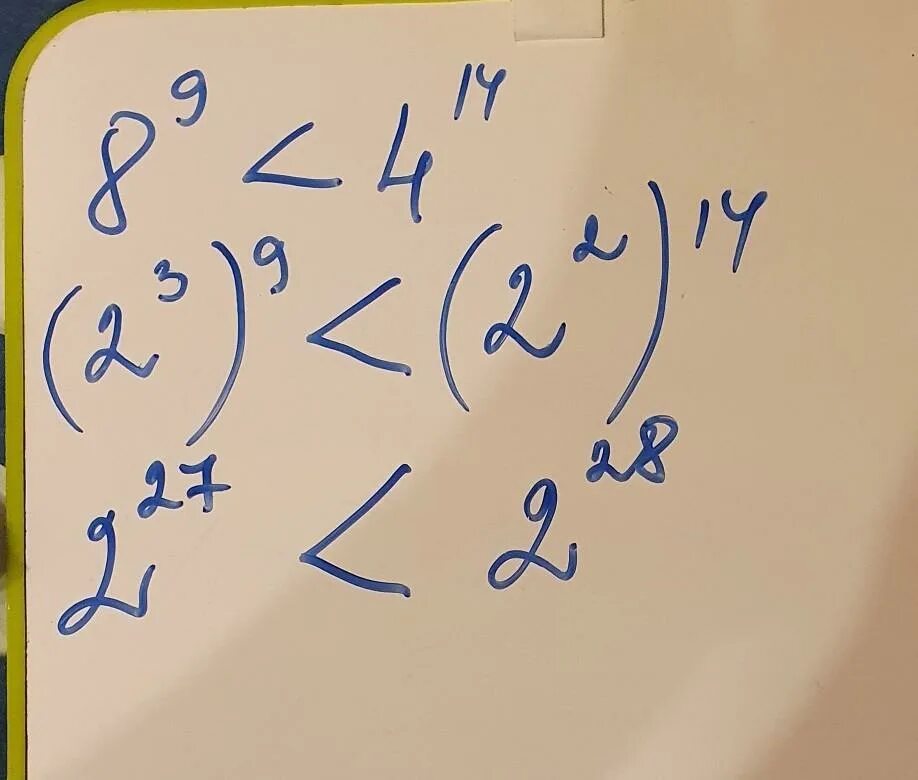 8⁹ < 4¹⁴
(2³)⁹ < (2²)¹⁴
2²⁷ < 2²⁸